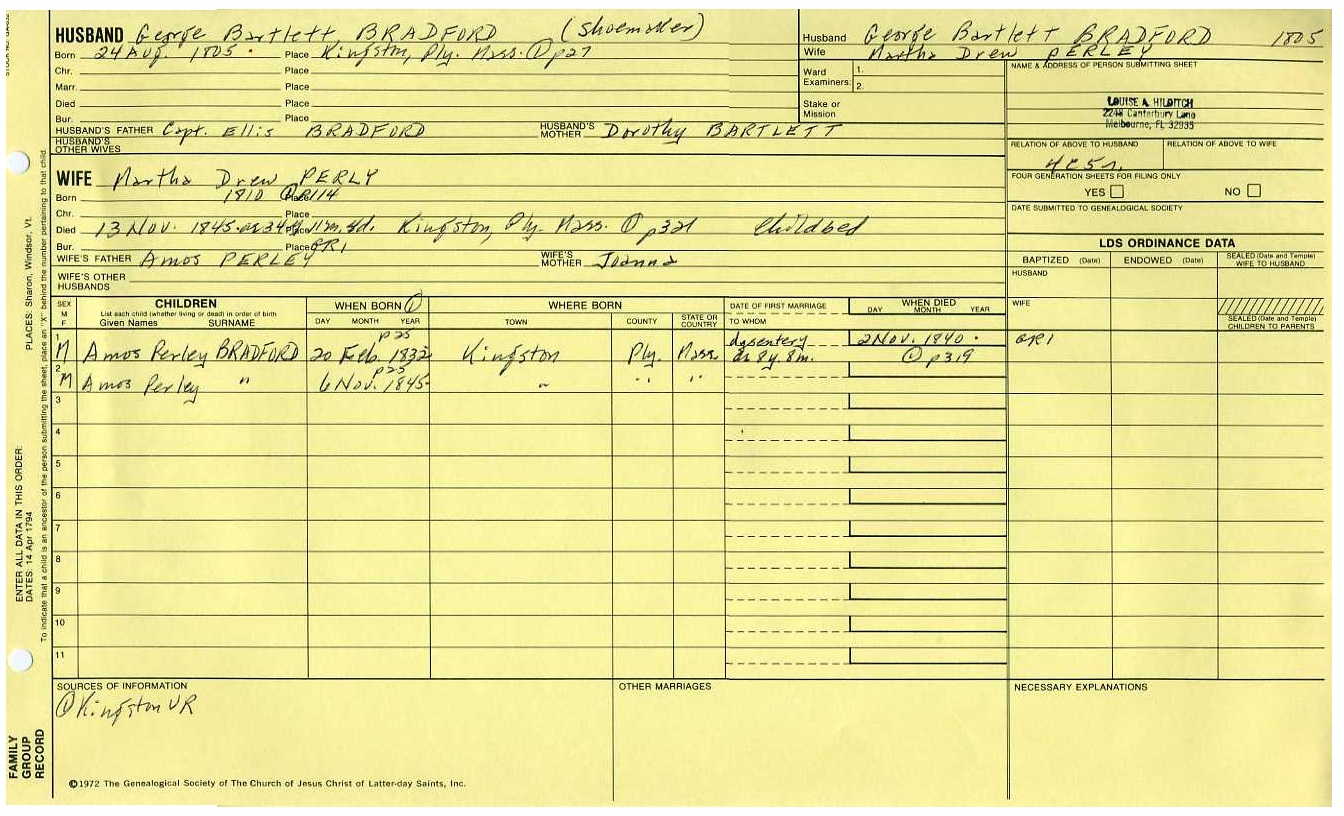 HUSBAND George Bartlett BRADFORD (Shoemaker)
Born 24 Aug. 1805 Place Kingston, Ply. Mass. ① p27
Chr. Place
Marr. Place
Died Place
Bur. Place
HUSBAND'S FATHER Capt. Ellis BRADFORD HUSBAND'S MOTHER Dorothy BARTLETT
HUSBAND'S OTHER WIVES
Husband George Bartlett BRADFORD 1805
Wife Martha Drew PERLEY
Ward Examiners: 1.
2.
Stake or Mission
NAME & ADDRESS OF PERSON SUBMITTING SHEET
LOUISE A. HILDITCH
2248 Canterbury Lane
Melbourne, FL 32935
RELATION OF ABOVE TO HUSBAND RELATION OF ABOVE TO WIFE
4C5r.
FOUR GENERATION SHEETS FOR FILING ONLY
YES NO
DATE SUBMITTED TO GENEALOGICAL SOCIETY
WIFE Martha Drew PERLY
Born 1810 ① Place p114
Chr. Place
Died 13 Nov. 1845 Place 11m. Kingston, Ply. Mass. ① p321 Childbed
Bur. Place GR1
WIFE'S FATHER Amos PERLEY WIFE'S MOTHER Joanna
WIFE'S OTHER HUSBANDS
LDS ORDINANCE DATA
BAPTIZED (Date) ENDOWED (Date) SEALED (Date and Temple) WIFE TO HUSBAND
HUSBAND
WIFE
SEALED (Date and Temple) CHILDREN TO PARENTS
SEX M F
CHILDREN
List each child (whether living or dead) in order of birth
Given Names SURNAME
WHEN BORN ①
DAY MONTH YEAR
WHERE BORN
TOWN COUNTY STATE OR COUNTRY
DATE OF FIRST MARRIAGE
TO WHOM
WHEN DIED
DAY MONTH YEAR
1 p25 dysentery 2 Nov. 1840 GR1
M Amos Perley BRADFORD 20 Feb. 1832 Kingston Ply. Mass. 8y. 8m. ① p319
2 p25
M Amos Perley " 6 Nov. 1845 " " "
3
4
5
6
7
8
9
10
11
SOURCES OF INFORMATION
① Kingston VR
OTHER MARRIAGES
NECESSARY EXPLANATIONS
©1972 The Genealogical Society of The Church of Jesus Christ of Latter-day Saints, Inc.
FAMILY GROUP RECORD
ENTER ALL DATA IN THIS ORDER:
DATES: 14 Apr 1794
PLACES: Sharon, Windsor, Vt.
To indicate that a child is an ancestor of the person submitting the sheet, place an "X" behind the number pertaining to that child.